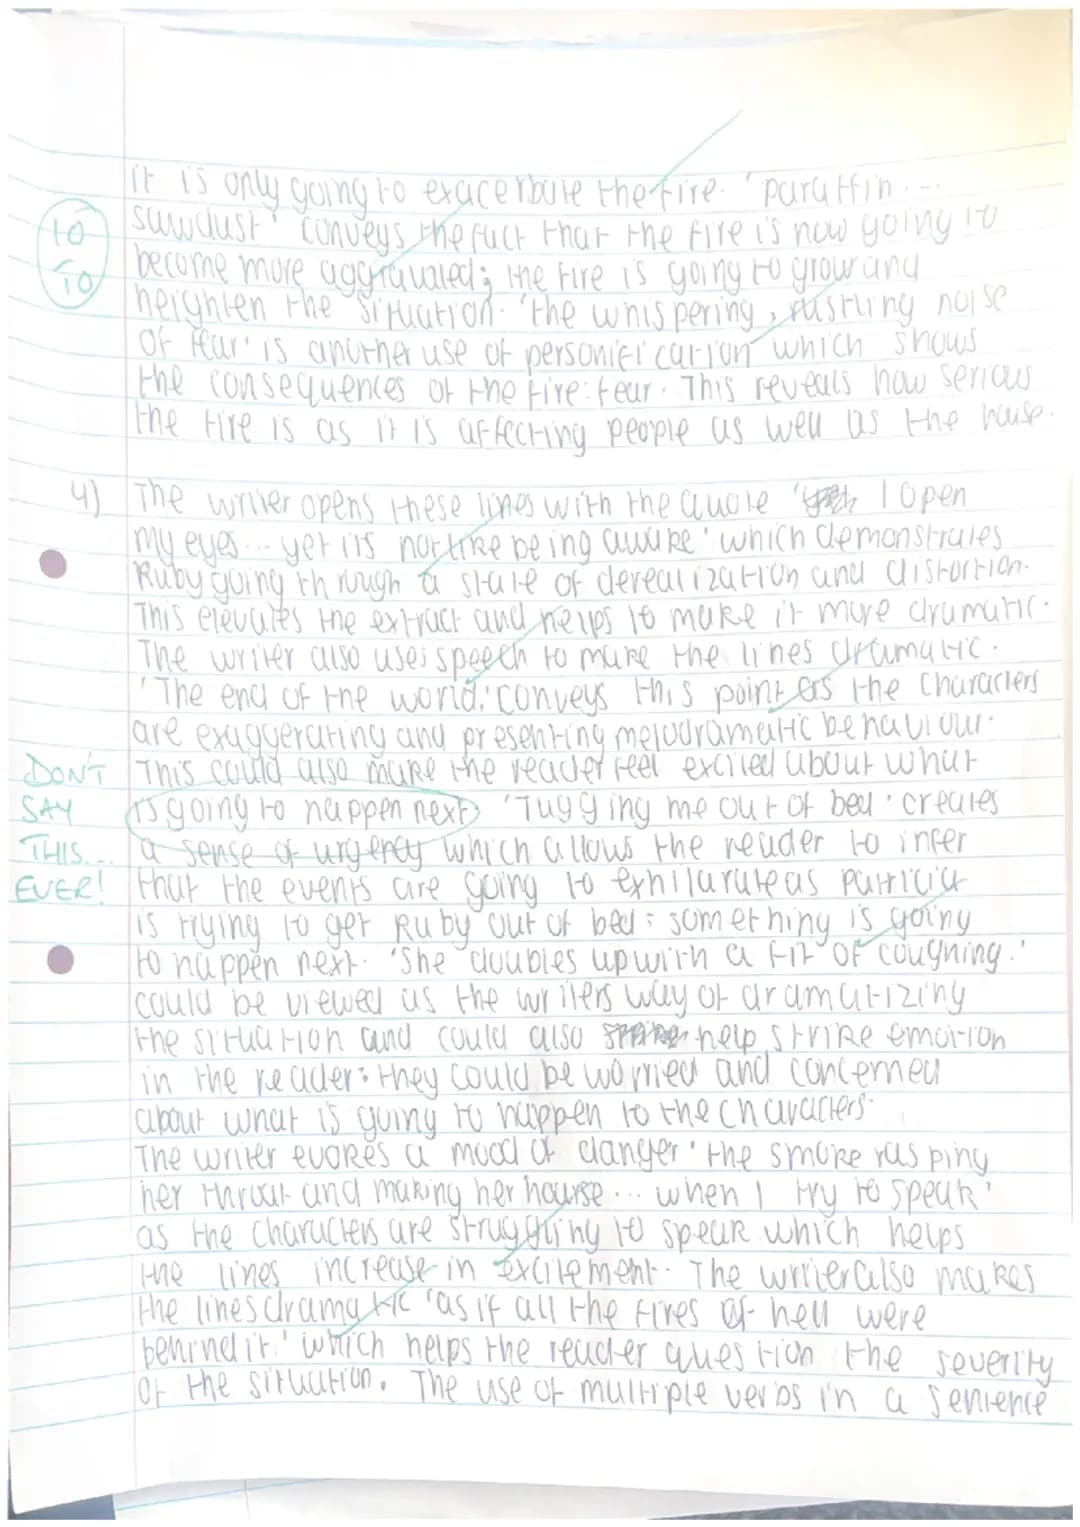 it is only going to exacerbate the fire. 'paraffin...
10
sawdust' conveys the fact that the fire is now going to
10
become more aggravated; the fire is going to grow and
heighten the situation. 'the whispering, rustling noise
of fear' is another use of personification which shows
the consequences of the fire: fear. This reveals how serious
the fire is as it is affecting people as well as the house.
4) The writer opens these lines with the quote ' I open
my eyes... yet its not like being awake' which demonstrates
Ruby going through a state of derealization and distortion.
This elevates the extract and helps to make it more dramatic.
The writer also uses speech to make the lines dramatic.
'The end of the world.' conveys this point as the characters
are exaggerating and presenting melodramatic behaviour.
DON'T This could also make the reader feel excited about what
SAY is going to happen next. 'Tugging me out of bed' creates
THIS... a sense of urgency which allows the reader to infer
EVER! that the events are going to exhilarate as Patricia
is trying to get Ruby out of bed: something is going
to happen next. 'She doubles up with a fit of coughing.'
could be viewed as the writers way of dramatizing
the situation and could also help strike emotion
in the reader: they could be worried and concerned
about what is going to happen to the characters.
The writer evokes a mood of danger 'the smoke rasping
her throat and making her hourse... when I try to speak'
as the characters are struggling to speak which helps
the lines increase in excitement. The writer also makes
the lines dramatic 'as if all the fires of hell were
behind it.' which helps the reader question the severity
of the situation. The use of multiple verbs in a sentence